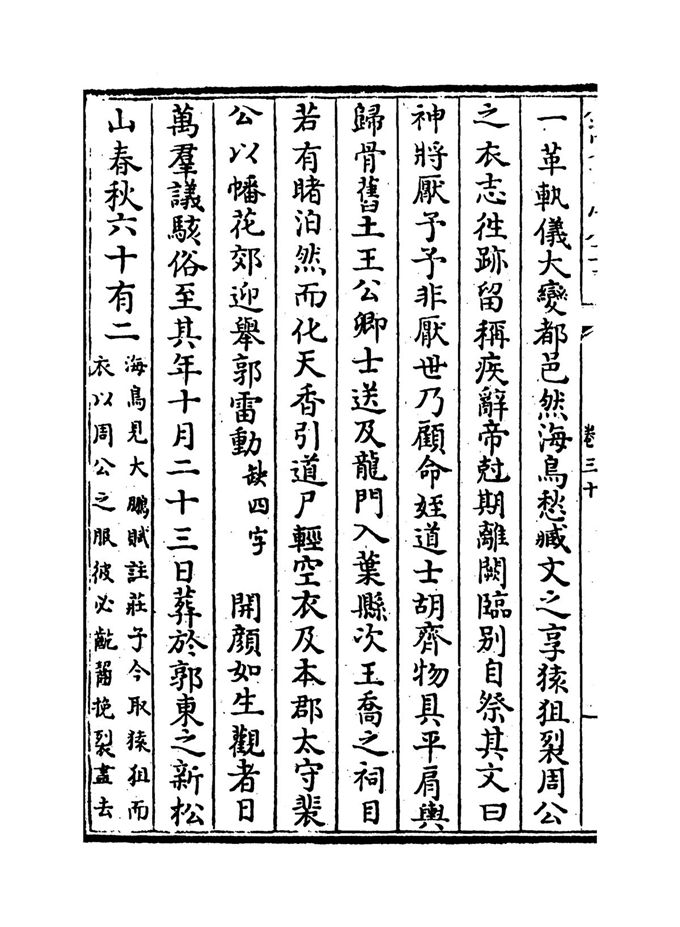 卷三十
一革軌儀大變都邑然海鳥愁臧文之享猿狙裂周公
之衣志徃跡留稱疾辭帝尅期離闕臨别自祭其文曰
神將厭予予非厭世乃顧命姪道士胡齊物具平肩輿
歸骨舊土王公卿士送及龍門入葉縣次王喬之祠目
若有睹泊然而化天香引道尸輕空衣及本郡太守裴
公以幡花郊迎舉郭雷動缺四字開顔如生觀者日
萬羣議駭俗至其年十月二十三日葬於郭東之新松
山春秋六十有二海鳥見大鵬賦註莊子今取猿狙而
衣以周公之服彼必齕齧挽裂盡去